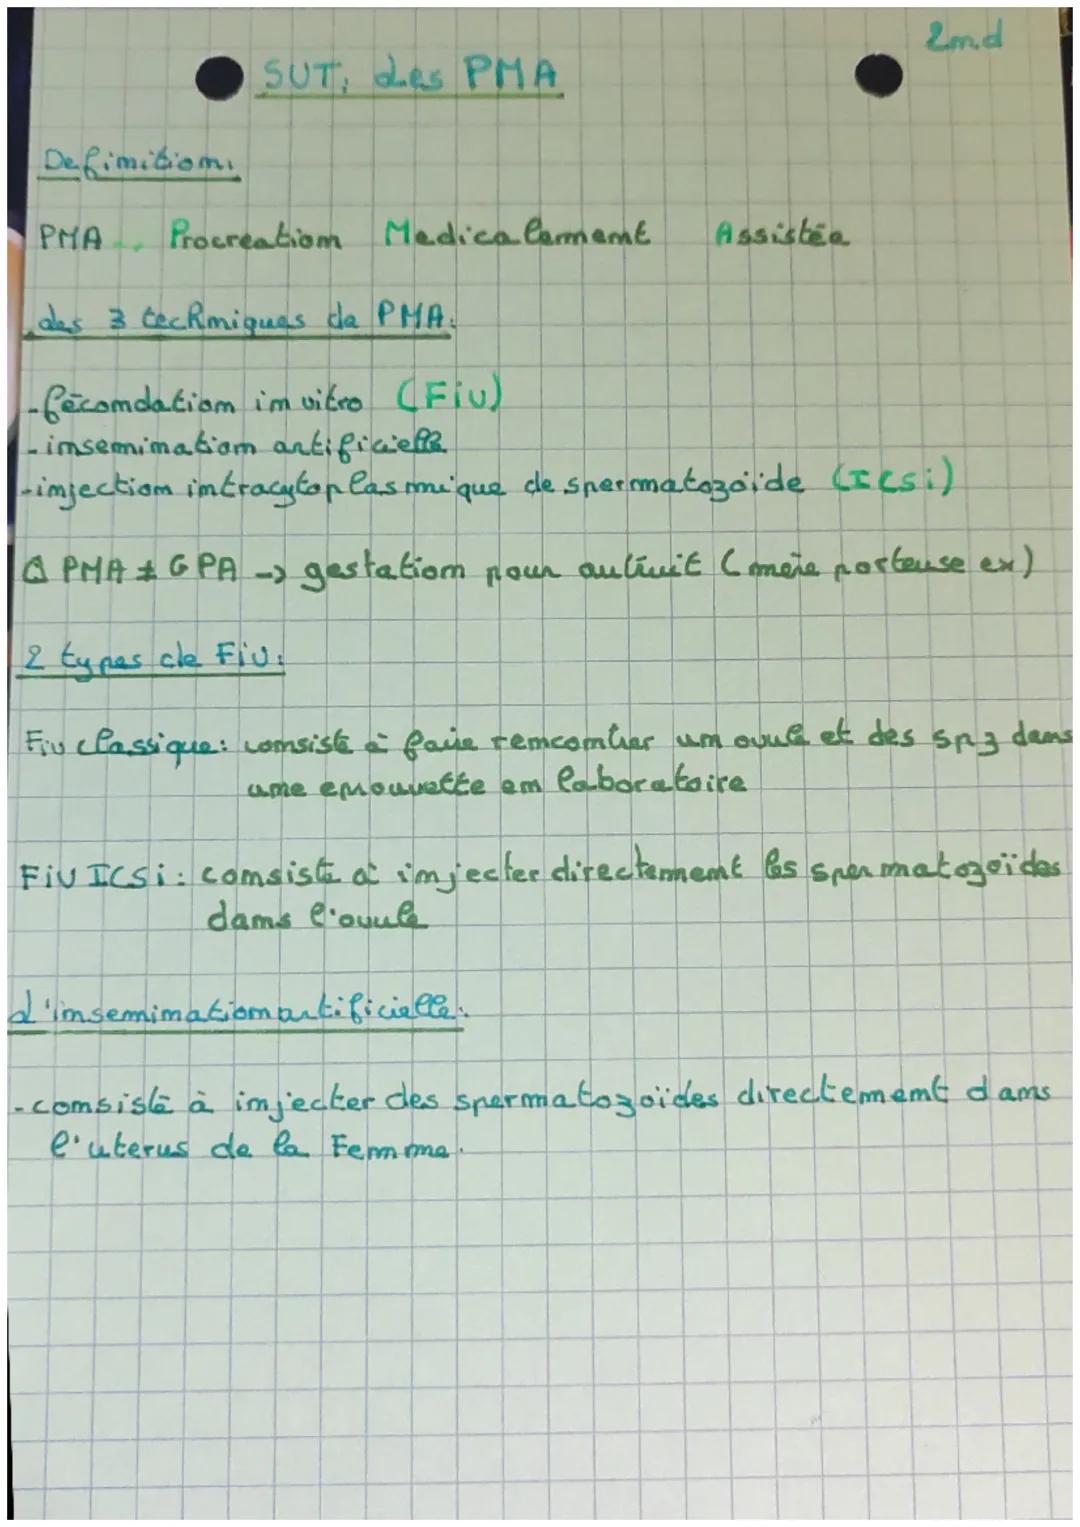 2nd
SVT: Les PMA
Definition:
PMA : Procreation Medicalement Assistée
Les 3 techniques de PMA:
-fécondation in vitro (Fiv)
-insemination artificielle
-injection intracytoplasmique de spermatozoïde (ICSi)
⚠ PMA ≠ GPA → gestation pour autruit (mère porteuse ex)
2 types de Fiv:
Fiv classique: consiste à faire rencontrer un ovule et des spz dans
une eprouvette en laboratoire
Fiv ICSi: consiste à injecter directement les spermatozoïdes
dans l'ovule
L'insemination artificielle:
-consiste à injecter des spermatozoïdes directement dans
l'uterus de la Femme.